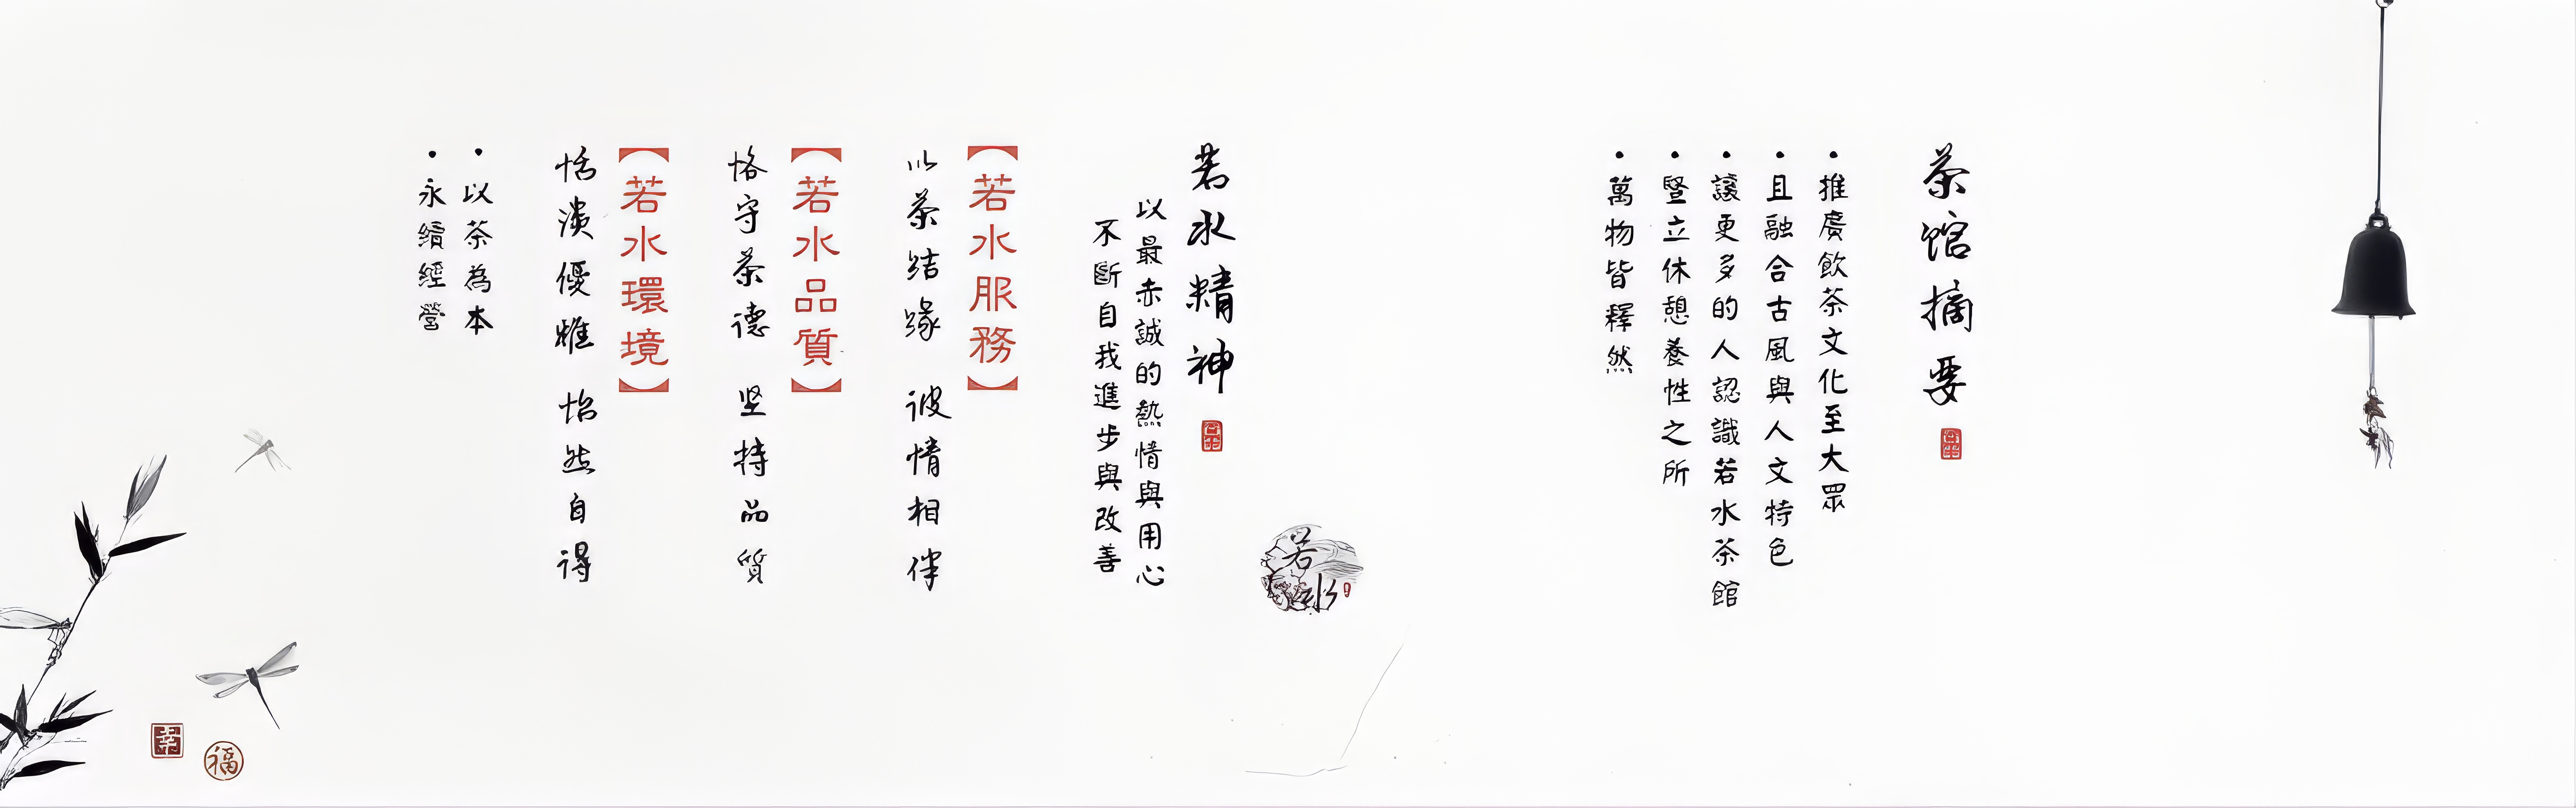 茶馆摘要
·推廣飲茶文化至大眾
·且融合古風與人文特色
·讓更多的人認識若水茶館
·暨立休憩養性之所
·萬物皆釋然
若水
若水精神
以最赤誠的熱情與用心
不斷自我進步與改善
【若水服務】
以茶结缘 彼情相伴
【若水品質】
恪守茶德 坚持品質
【若水環境】
恬淡優雅 怡然自得
·以茶為本
·永續經營
福